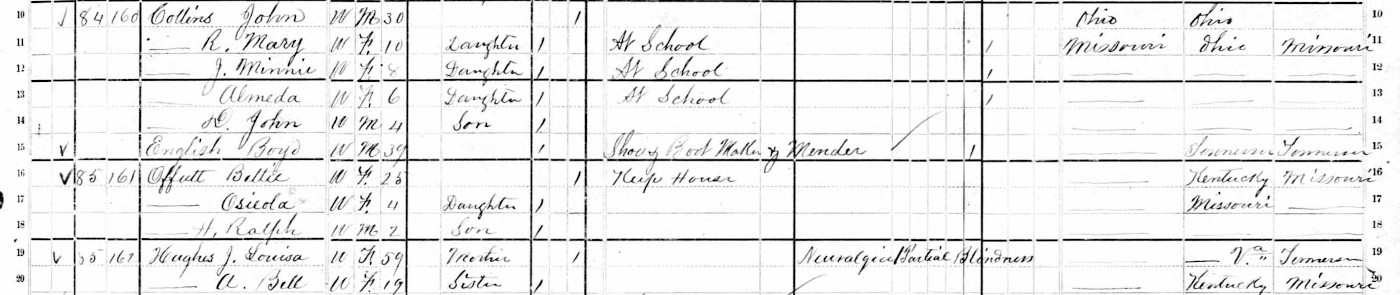 10 84 160 Collins John W M 30 1 Ohio Ohio 10
11 — R. Mary W F. 10 Daughter 1 At School 1 Missouri Ohio Missouri 11
12 — J. Minnie W F. 8 Daughter 1 At School 1 — — — 12
13 — Almeda W F. 6 Daughter 1 At School 1 — — — 13
14 — D. John W M 4 Son 1 — — — 14
15 English Boyd W M 39 1 Shoe & Boot Maker & Mender 1 — Tennessee Tennessee 15
16 85 161 Offutt Bettie W F. 25 1 Keep House — Kentucky Missouri 16
17 — Osieola W F. 4 Daughter 1 — Missouri — 17
18 — H. Ralph W M 2 Son 1 — — — 18
19 85 162 Hughes J. Louisa W F. 59 Mother 1 Neuralgia Partial Blindness — Va. Tennessee 19
20 — A. Bell W F. 19 Sister 1 — Kentucky Missouri 20